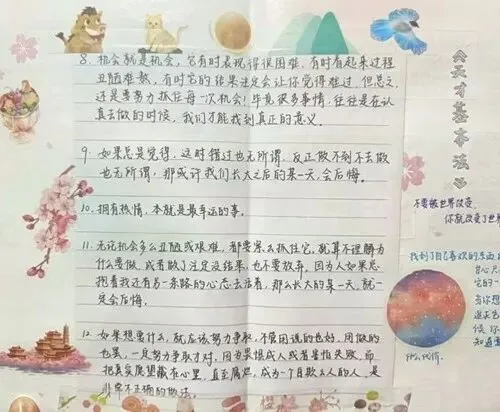 8. 机会就是机会，它有时表现得很困难，有时看起来过程
丑陋难熬，有时它的结果注定会让你觉得难过，但总之，
还是要努力抓住每一次机会！毕竟很多事情，往往是在认
真去做的时候，我们才能找到真正的意义。
9. 如果总是觉得，这时错过也无所谓，反正做不到不去做
也无所谓，那或许我们长大之后的某一天，会后悔。
10. 拥有热情，本就是最幸运的事。
11. 无论机会多么丑陋或艰难，都要紧么抓住它。就算不理解为
什么要做，或者做了注定没结果，也不要放弃，因为人如果总
抱着我还有另一条路的心态去活着，那么长大的某一天，就一
定会后悔。
12. 如果想要什么，就应该努力争取，不管用说的也好，用做的
也罢，一定努力争取才对，因为害怕成人或者害怕失败，而
把真实愿望藏在心里，直至腐烂，成为一个自欺欺人的人，是
非常不正确的做法。
《天才基本法》
不要被世界改变，
你就改变了世界
找到了自己喜欢的东西
甘心
它的一
当你
候，你
知道
什么代价。